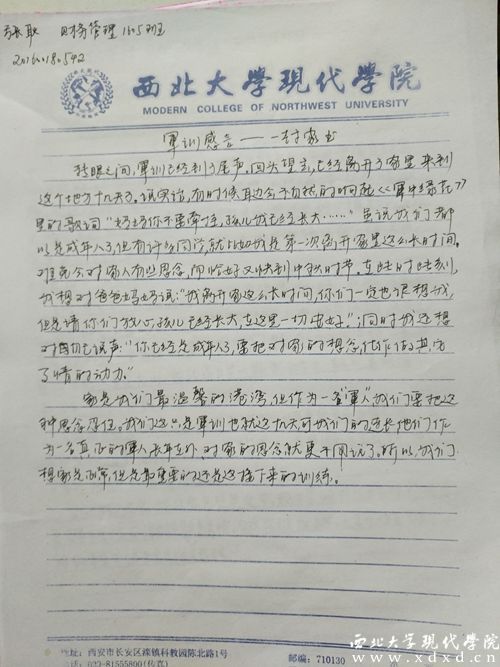 张耿 财务管理1605班
2016180542
西北大学現代学院
MODERN COLLEGE OF NORTHWEST UNIVERSITY
軍训感言——一封家书
转眼之间,軍训已经到了尾声。回头望去,已经离开了家里来到
这个地方十九天了。说实话,有时候耳边会不自然的响起《軍中绿花》
里的歌词"妈妈你不要牵挂,孩儿我已经长大……"虽说我们都
以是成年人了,但有许多同学,就比如我是第一次离开家里这么长时间。
难免会对家人有些思念,而恰好又快到中秋时节。在此时此刻,
我想对爸爸妈妈说:"我离开家这么长时间,你们一定也很想我,
但是请你们放心,孩儿已经长大,在这里一切安好。";同时我还想
对自己说声:"你已经是成年人了,要把对家的思念,化作
情的动力。"
家是我们最温馨的港湾,但作为一名"軍人"我们要把这
种思念压住。我们这只是軍训也就这十九天,可我们的连长他们作
为一名真正的軍人长年在外对家的思念就更不用说了。所以,我们
想家是正常,但是最重要的还是这接下来的训练。
地址:西安市长安区滦镇科教园陈北路1号
电话:029-81555890(传真) 邮编:710130
西北大学現代学院
www.xdxd.cn